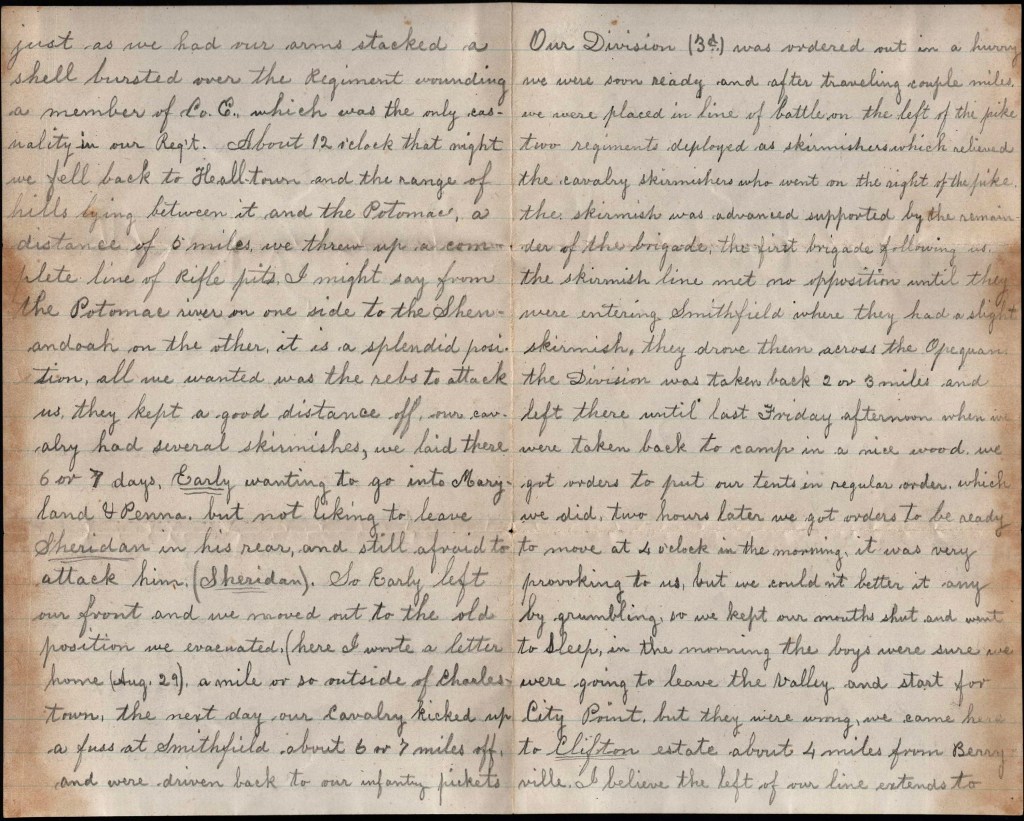 just as we had our arms stacked a
shell bursted over the Regiment wounding
a member of Co. E., which was the only cas-
uality in our Reg't. About 12 o'clock that night
we fell back to Heall-town and the range of
hills lying between it and the Potomac, a
distance of 5 miles, we threw up a com-
plete line of Rifle pits, I might say from
the Potomac river on one side to the Shen-
andoah on the other, it is a splendid posi-
tion, all we wanted was the rebs to attack
us, they kept a good distance off, our cav-
alry had several skirmishes, we laid there
6 or 7 days, Early wanting to go into Mary-
land & Penna. but not liking to leave
Sheridan in his rear, and still afraid to
attack him, (Sheridan). So Early left
our front and we moved out to the old
position we evacuated, (here I wrote a letter
home (Aug. 29), a mile or so outside of Charles-
town, the next day our Cavalry kicked up
a fuss at Smithfield about 6 or 7 miles off,
and were driven back to our infantry pickets
Our Division (3d.) was ordered out in a hurry
we were soon ready and after traveling couple miles.
we were placed in line of battle on the left of the pike
two regiments deployed as skirmishers which relieved
the cavalry skirmishers who went on the right of the pike.
the skirmish was advanced supported by the remain-
der of the brigade, the first brigade following us.
the skirmish line met no opposition until they
were entering Smithfield where they had a slight
skirmish, they drove them across the Opequan
the Division was taken back 2 or 3 miles and
left there until last Friday afternoon when we
were taken back to camp in a nice wood. we
got orders to put our tents in regular order. which
we did, two hours later we got orders to be ready
to move at 4 o'clock in the morning, it was very
provoking to us, but we couldn't better it any
by grumbling, so we kept our mouths shut and went
to Sleep, in the morning the boys were sure we
were going to leave the Valley and start for
City Point, but they were wrong, we came here
to Clifton estate about 4 miles from Berry-
ville. I believe the left of our line extends to